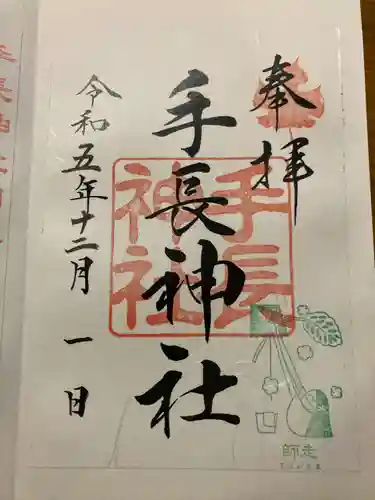 奉拝
手長神社
令和五年十二月一日
手長
神社
師走